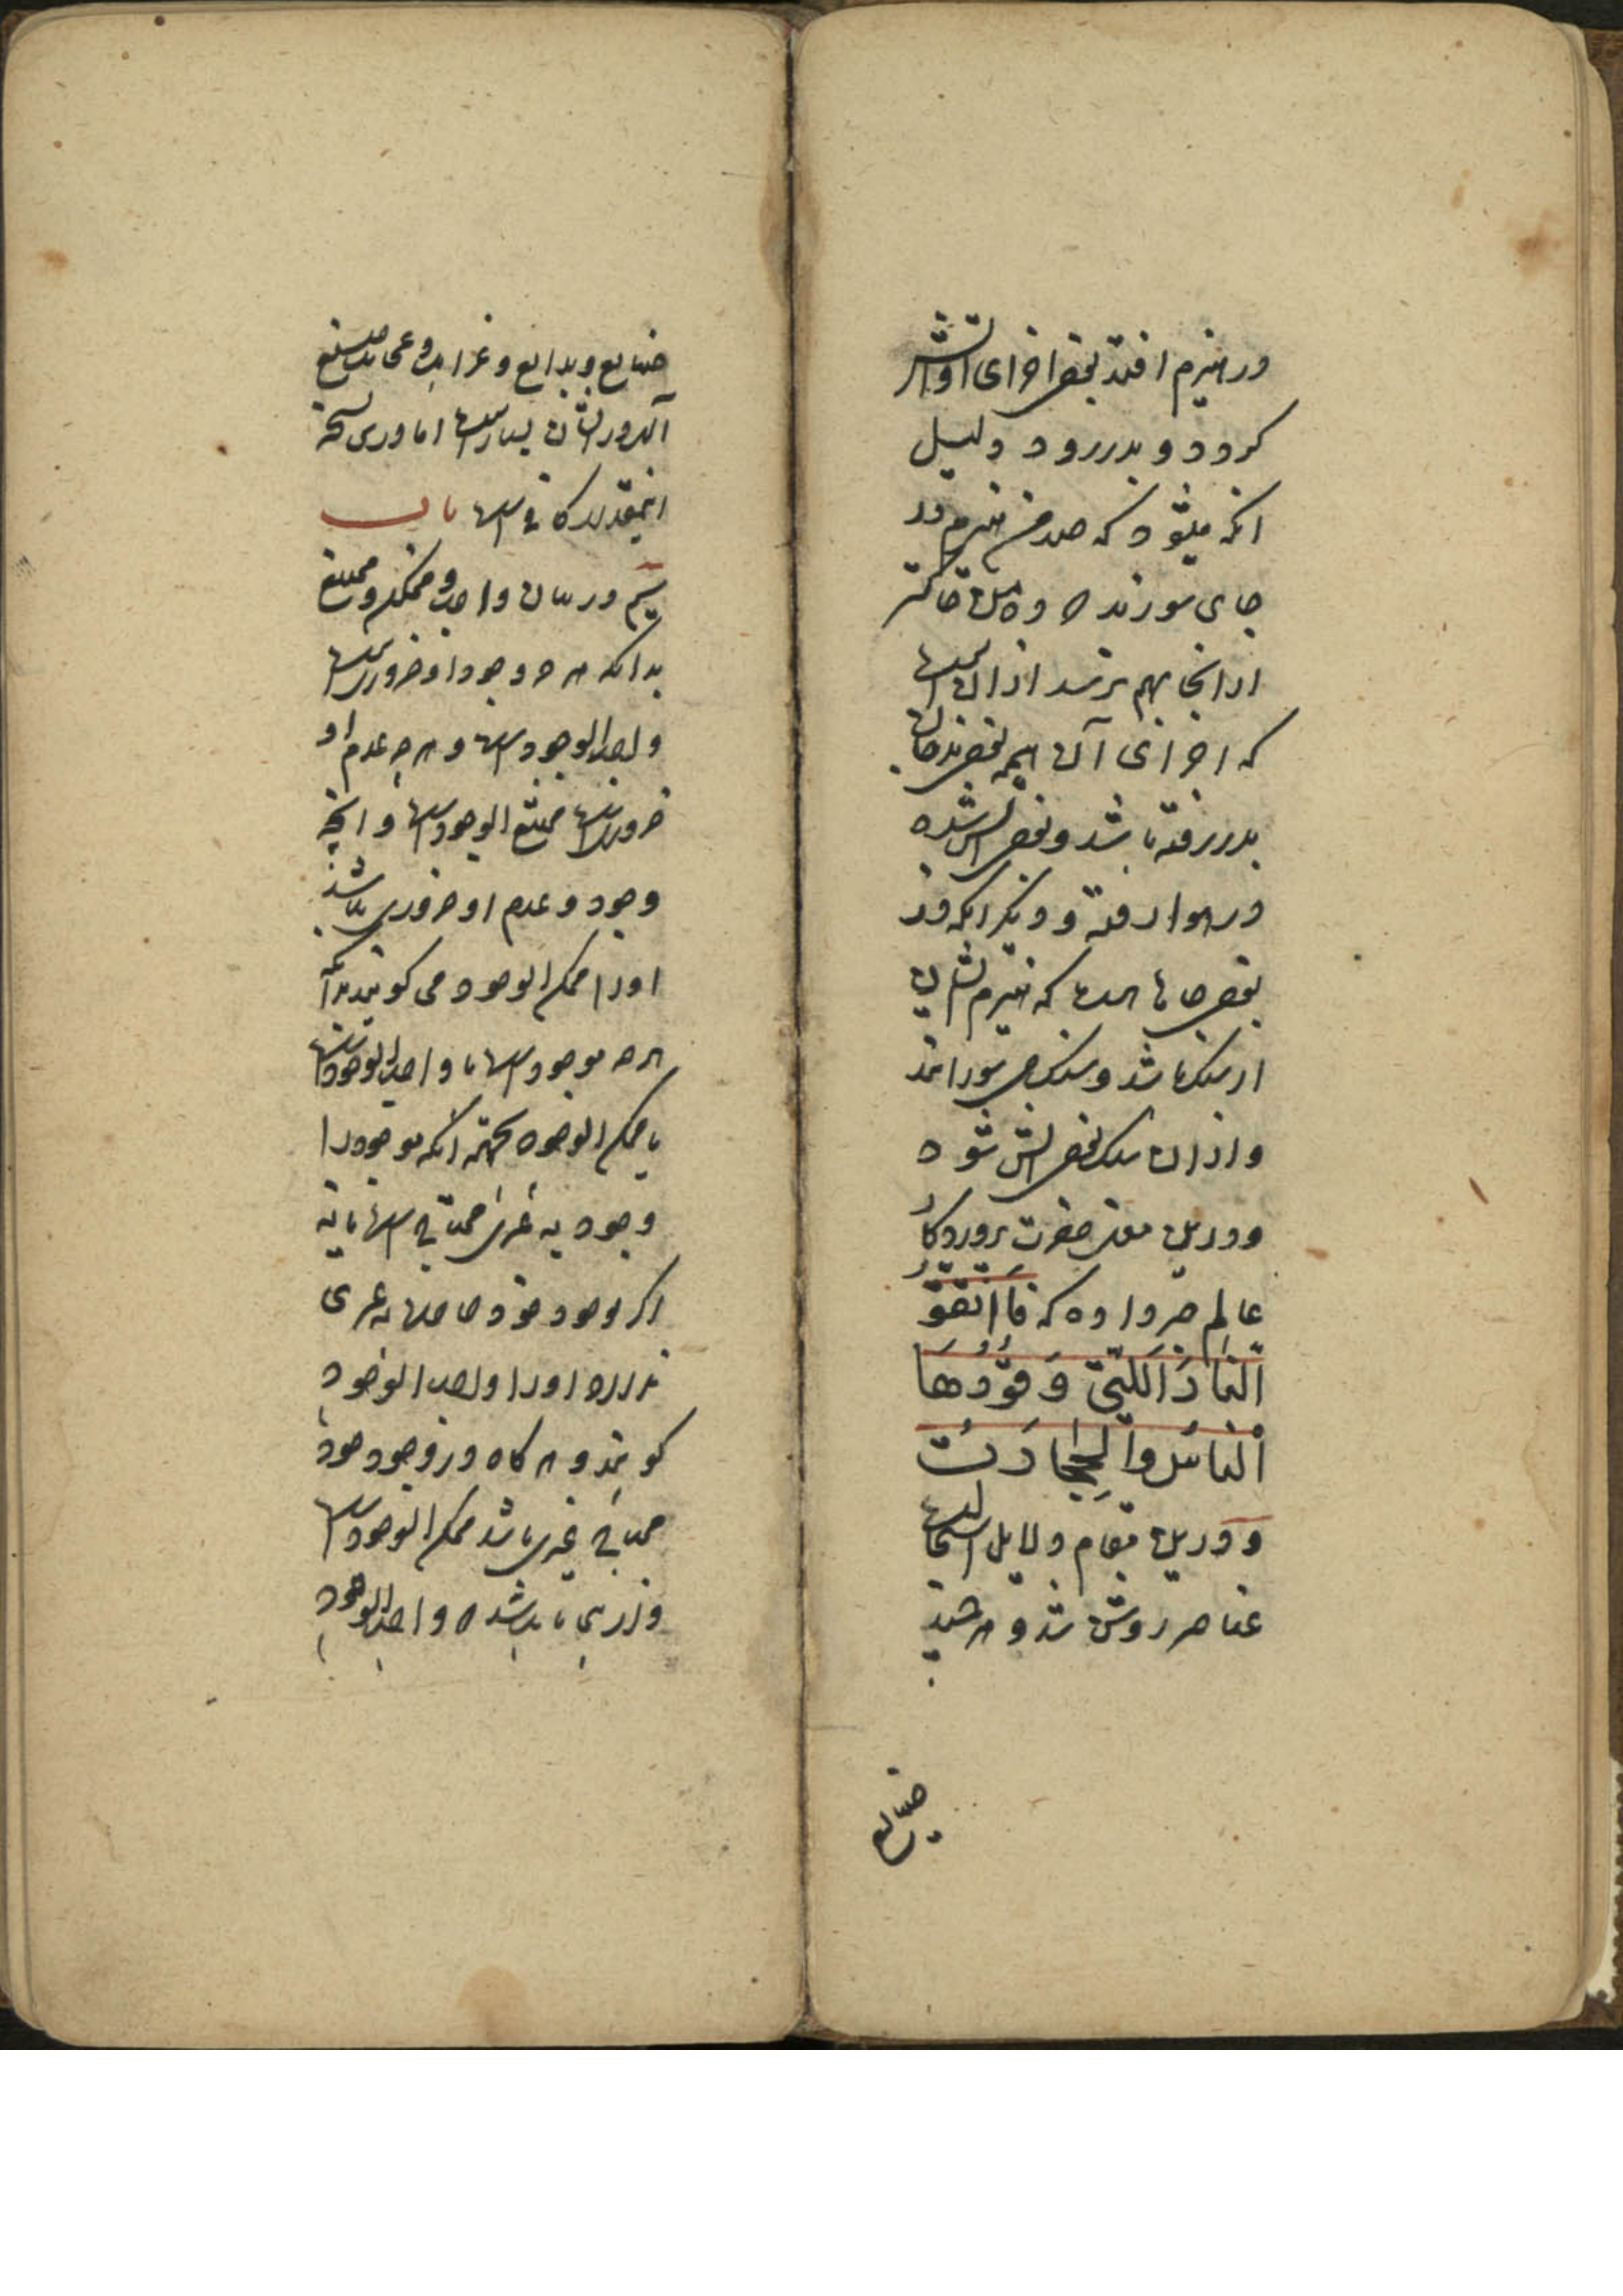 در هیزم افتد بعض اجزای او آتش
کردد و بدررود دلیل
انکه میشود که صدمن هیزم در
جای سوزند ده من خاکستر
از انجا بهم نرسد از ان است
که اجزای آن همه بعض بدخان
بدررفته باشد و بعض آتش شده
در هوا رفته و دیکر انکه در
بعض جاها است که هیزم نشان
از سنک باشد و سنک می سوزانند
و از ان سنک بعض آتش شود
و درین معنی حضرت پروردکار
عالم خبر داده که فَاتَّقُو
النَّارَ الَّتِی وَقُوْدُهَا
النَّاسُ وَالْحِجَارَت
و درین مقام دلایل استحالت
عناصر روشن شد و هرچند
صنایع
صنایع و بدایع و غرایب و عجایب صنع
آلهی در ایشان بسیار است اما درین نسخه
اینقدر کافی است باب
سیم در بیان واجب و ممکن و ممتنع
بدانکه هرچه وجود او ضروریست
واجب الوجود است و هرچه عدم او
ضروریست ممتنع الوجود است و انچه
وجود و عدم او ضروری نباشد
اورا ممکن الوجود می کویند بدانکه
هرچه موجود است یا واجب الوجود است
یا ممکن الوجود بجهته آنکه موجود را
وجود به غیری محتاج است یا نه
اکر بوجود خود حاجت به غیری
ندارد اورا واجب الوجود
کویند و هرکاه در وجود خود
محتاج غیری باشد ممکن الوجود است